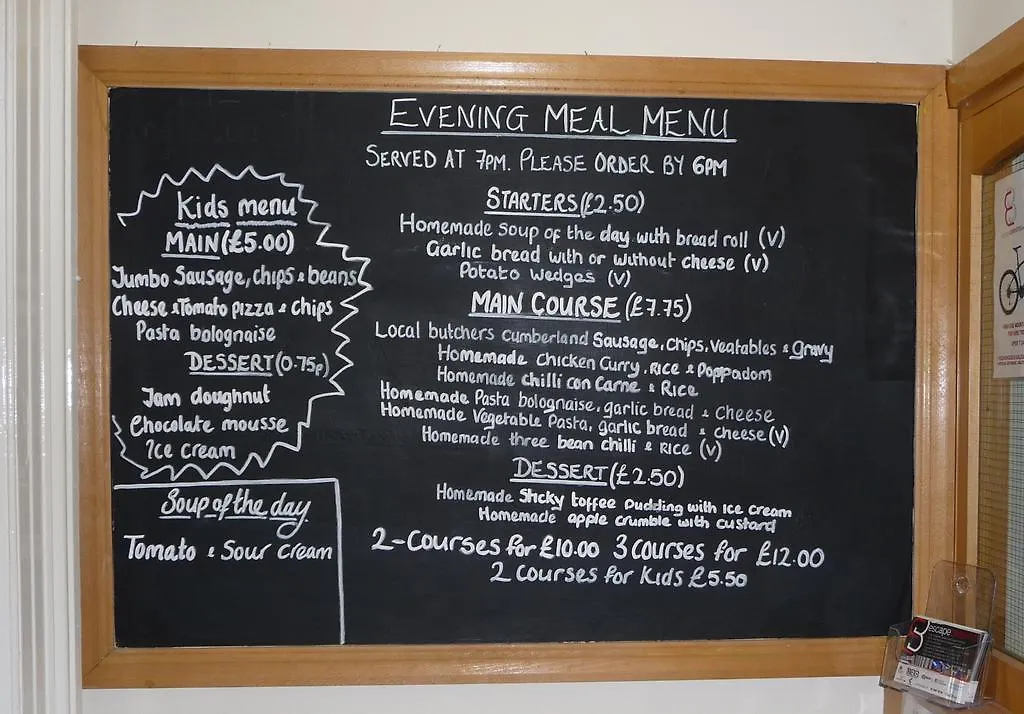 EVENING MEAL MENU
SERVED AT 7PM. PLEASE ORDER BY 6PM
STARTERS (£2.50)
Homemade soup of the day with bread roll (V)
Garlic bread with or without cheese (V)
Potato wedges (V)
MAIN COURSE (£7.75)
Local butchers cumberland Sausage, Chips, Veatables & Gravy
Homemade Chicken Curry, Rice & Poppadom
Homemade chilli con Carne & Rice
Homemade Pasta bolognaise, garlic bread & Cheese
Homemade Vegetable Pasta, garlic bread & cheese (V)
Homemade three bean chilli & Rice (V)
DESSERT (£2.50)
Homemade Sticky toffee Pudding with Ice cream
Homemade apple crumble with custard
2-Courses for £10.00 3 Courses for £12.00
2 Courses for Kids £5.50
Kids menu
MAIN (£5.00)
Jumbo Sausage, chips & beans
Cheese & Tomato pizza & chips
Pasta bolognaise
DESSERT (0.75p)
Jam doughnut
Chocolate mousse
Ice cream
Soup of the day
Tomato & Sour cream
escape